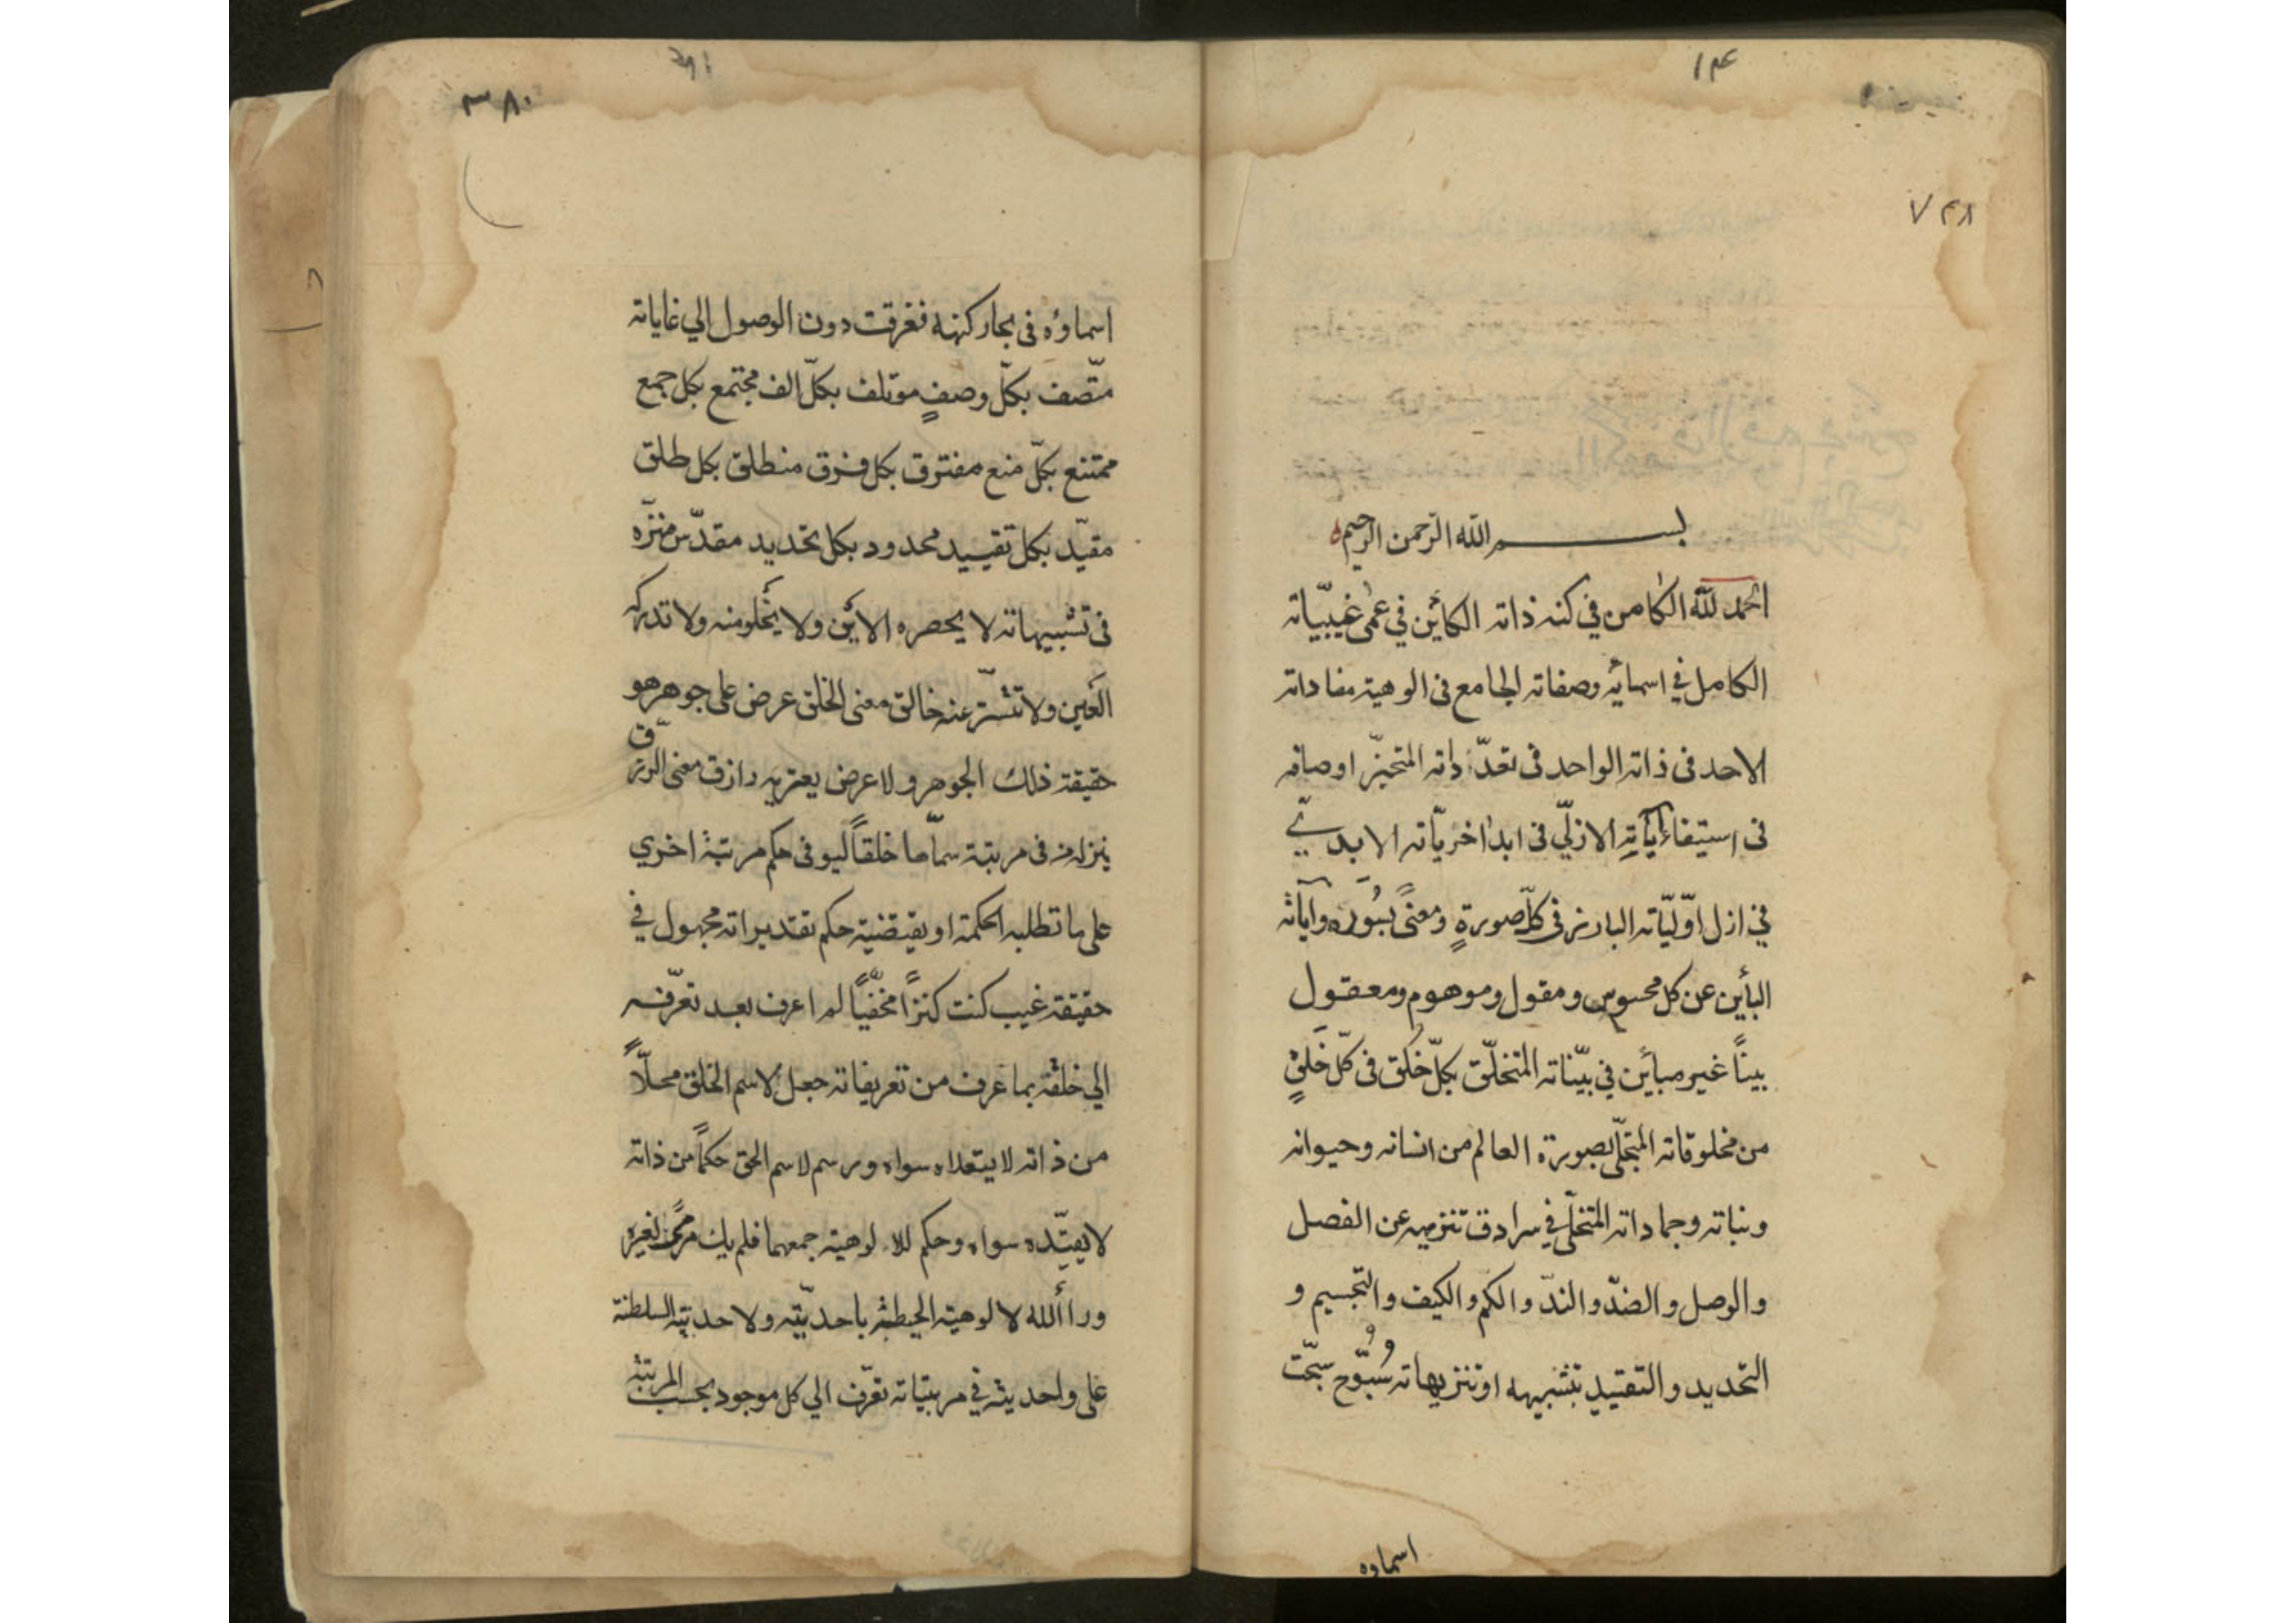 ١٤
٧٤٨
بسم الله الرحمن الرحيم
الحمد لله الكامن في كنه ذاته الكائن في عمى غيبيّاته
الكامل في اسمائه وصفاته الجامع فى الوهيته مفاداته
الاحد فى ذاته الواحد فى تعدّداته المتحيّز اوصافه
فى استيفاء آياته الازلّي فى ابد اخريّاته الابديّ
في ازل اوّليّاته البارز فى كلّ صورةٍ ومعنىً بسُوره وآياته
البأين عن كل محسوس ومقول وموهوم ومعقول
بيناً غير مبأين في بيّناته المتخلّق بكلّ خَلق فى كلّ خَلقٍ
من مخلوقاته المتجلّي بصورة العالم من انسانه وحيوانه
ونباته وجماداته المتخلّي في سرادق تنزيهه عن الفصل
والوصل والضدّ والندّ والكم والكيف والتجسيم و
التحديد والتقييد بتشبيهه او تنزيهاته سُبّوحٌ سبّحت
اسماوه
٣٨٠
اسماؤه فى بحار كنهه فغرقت دون الوصول الي غاياته
متّصف بكلّ وصفٍ موتلف بكلّ الف مجتمع بكل جمع
ممتنع بكلّ منع مفترق بكل فرق منطلق بكل طلق
مقيّد بكل تقييد محدود بكل تحديد مقدّس منزّه
فى تشبيهاته لا يحصره الأين ولا يخلو منه ولا تدركه
العين ولا تتستّر عنه خالق معنى الخلق عرض على جوهر هو
حقيقة ذلك الجوهر ولا عرض يعتريه رازق معنى الرزق
ينزله فى مرتبة سمّاها خلقاً ليو فى حكم مرتبة اخري
على ما تطلبه الحكمة او يقتضيه حكم تقديراته مجهول في
حقيقة غيب كنت كنزاً مخفيّاً لم اعرف بعد تعرّفه
الي خلقه بما عرف من تعريفاته جعل لاسم الخلق محلّاً
من ذاته لا يتعداه سواه ورسم لاسم الحق حكماً من ذاته
لا يقيّده سواه وحكم للالوهية جمعهما فلم يك لغيره
ورا ألله لالوهيته الحيطة باحديّته ولاحديته السلطنة
على واحديته في مرتباته تعرّف الي كل موجود بحسب المرتبة